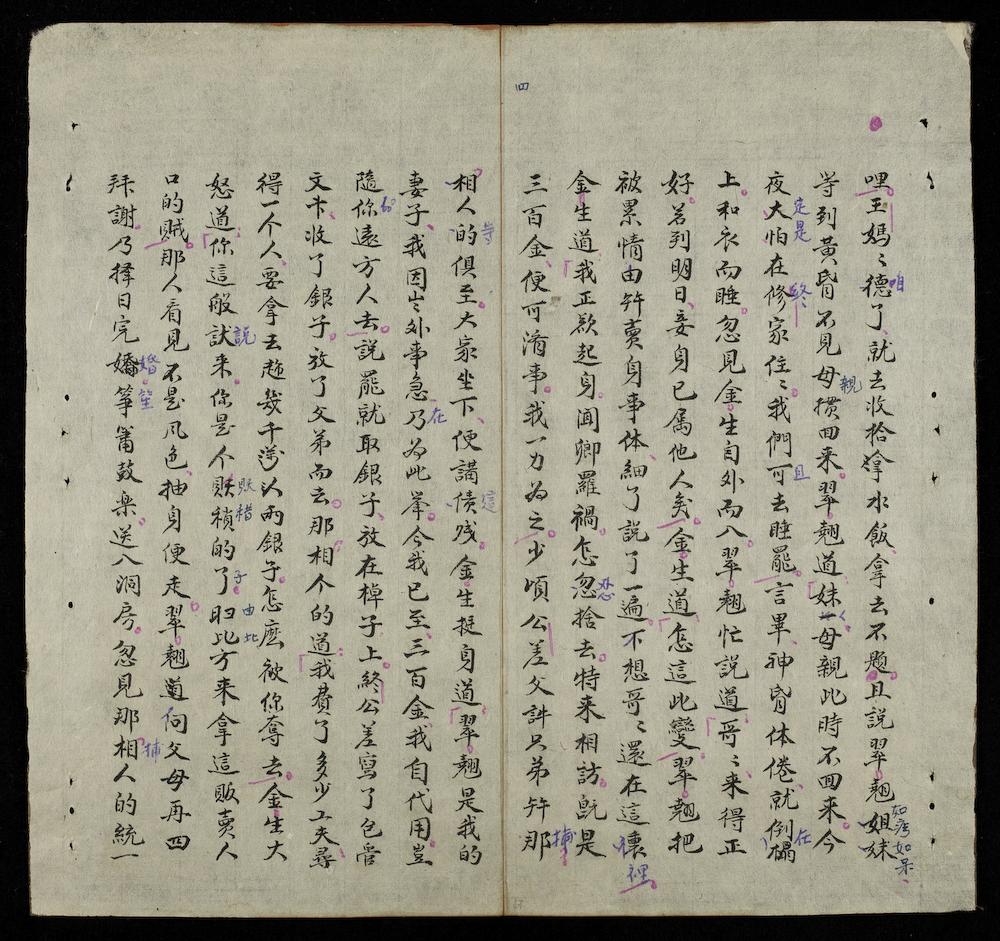 哩王媽〻德了就去收拾拿水飯拿去不題且說翠翹姐妹
等到黃昏不見母摜回來翠翹道妹〻母親此時不回來今
夜大怕在修家住〻我們可去睡罷言畢神昏体倦就倒榻
上和衣而睡忽見金生自外而入翠翹忙説道哥〻來得正
好若到明日妾身已属他人矣金生道怎這此變翠翹把
被累情由并賣身事体細了説了一遍不想哥〻還在這懷
金生道我正欲起身聞卿羅禍怎忽捨去特来相訪既是
三百金便可濟事我一力為之少頃公差父弟并那
相人的俱至大家坐下便講債成金生挺身道翠翹是我的
妻子我因出外事急乃為此举今我已至三百金我自代用豈
隨你遠方人去説罷就取銀子放在棹子上終公差寫了包管
文卞收了銀子放了父弟而去那相个的道我費了多少工夫尋
得一个人要拿去趂幾千涝以両銀子怎麽被你奪去金生大
怒道你這般試来你是个販積的了即比方来拿這販賣人
口的賊那人看見不是凨色抽身便走翠翹道向父母再四
拜謝乃擇日完嬌筝簫鼓楽送入洞房忽見那相人的統一
四
咱
如痴如呆
親
走是
終
且
在
裡
恐
捕
等
這
在
的
説
販
糌
子
由此
婚
笙
捕